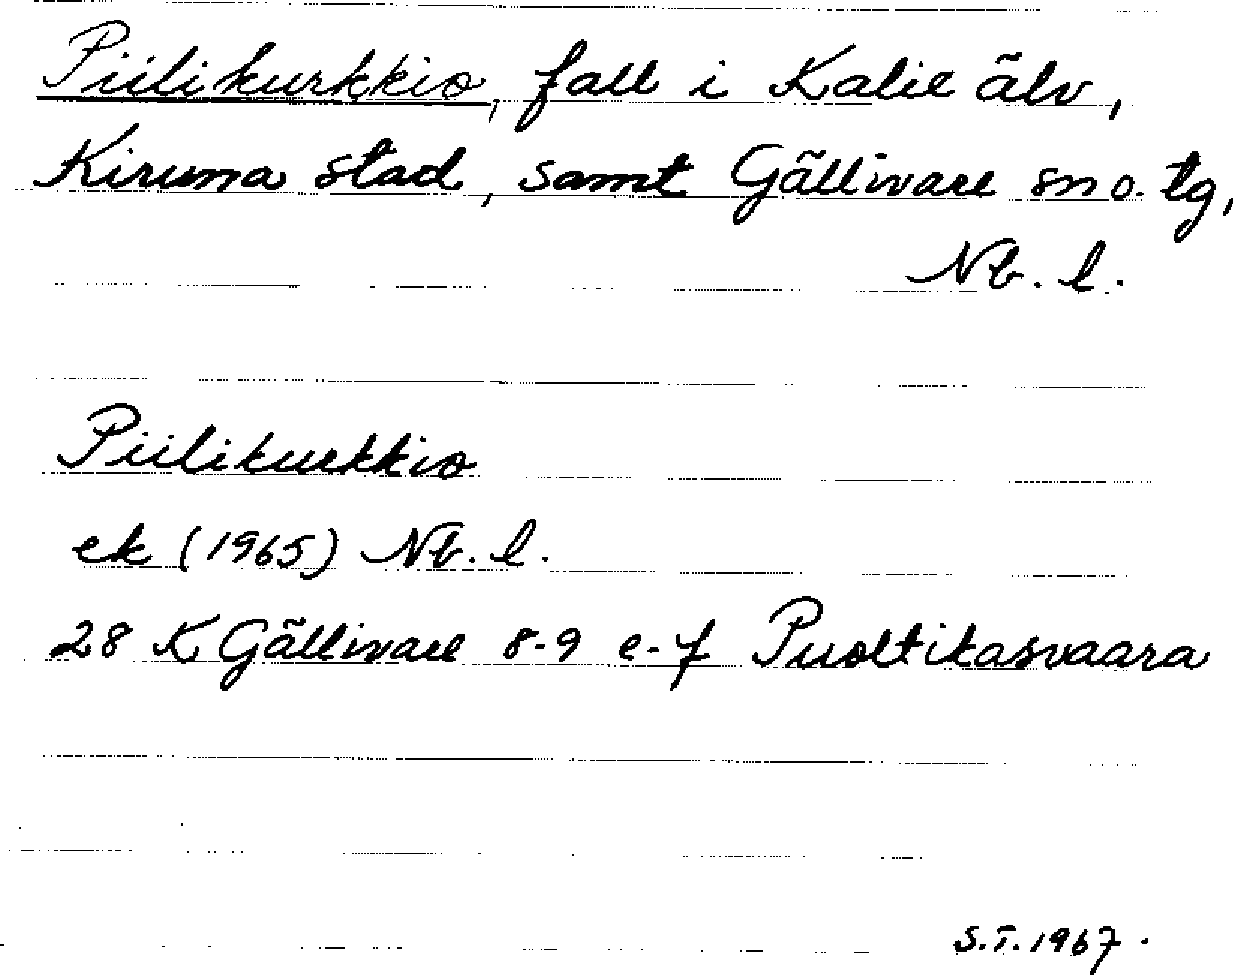 Piilikurkkio, fall i Kalix älv,
Kiruna stad, samt Gällivare sn o. tg,
Nb. l.
Piilikurkkio
ek (1965) Nb. l.
28 K Gällivare 8-9 e-f Puoltikasvaara
S.T. 1967.